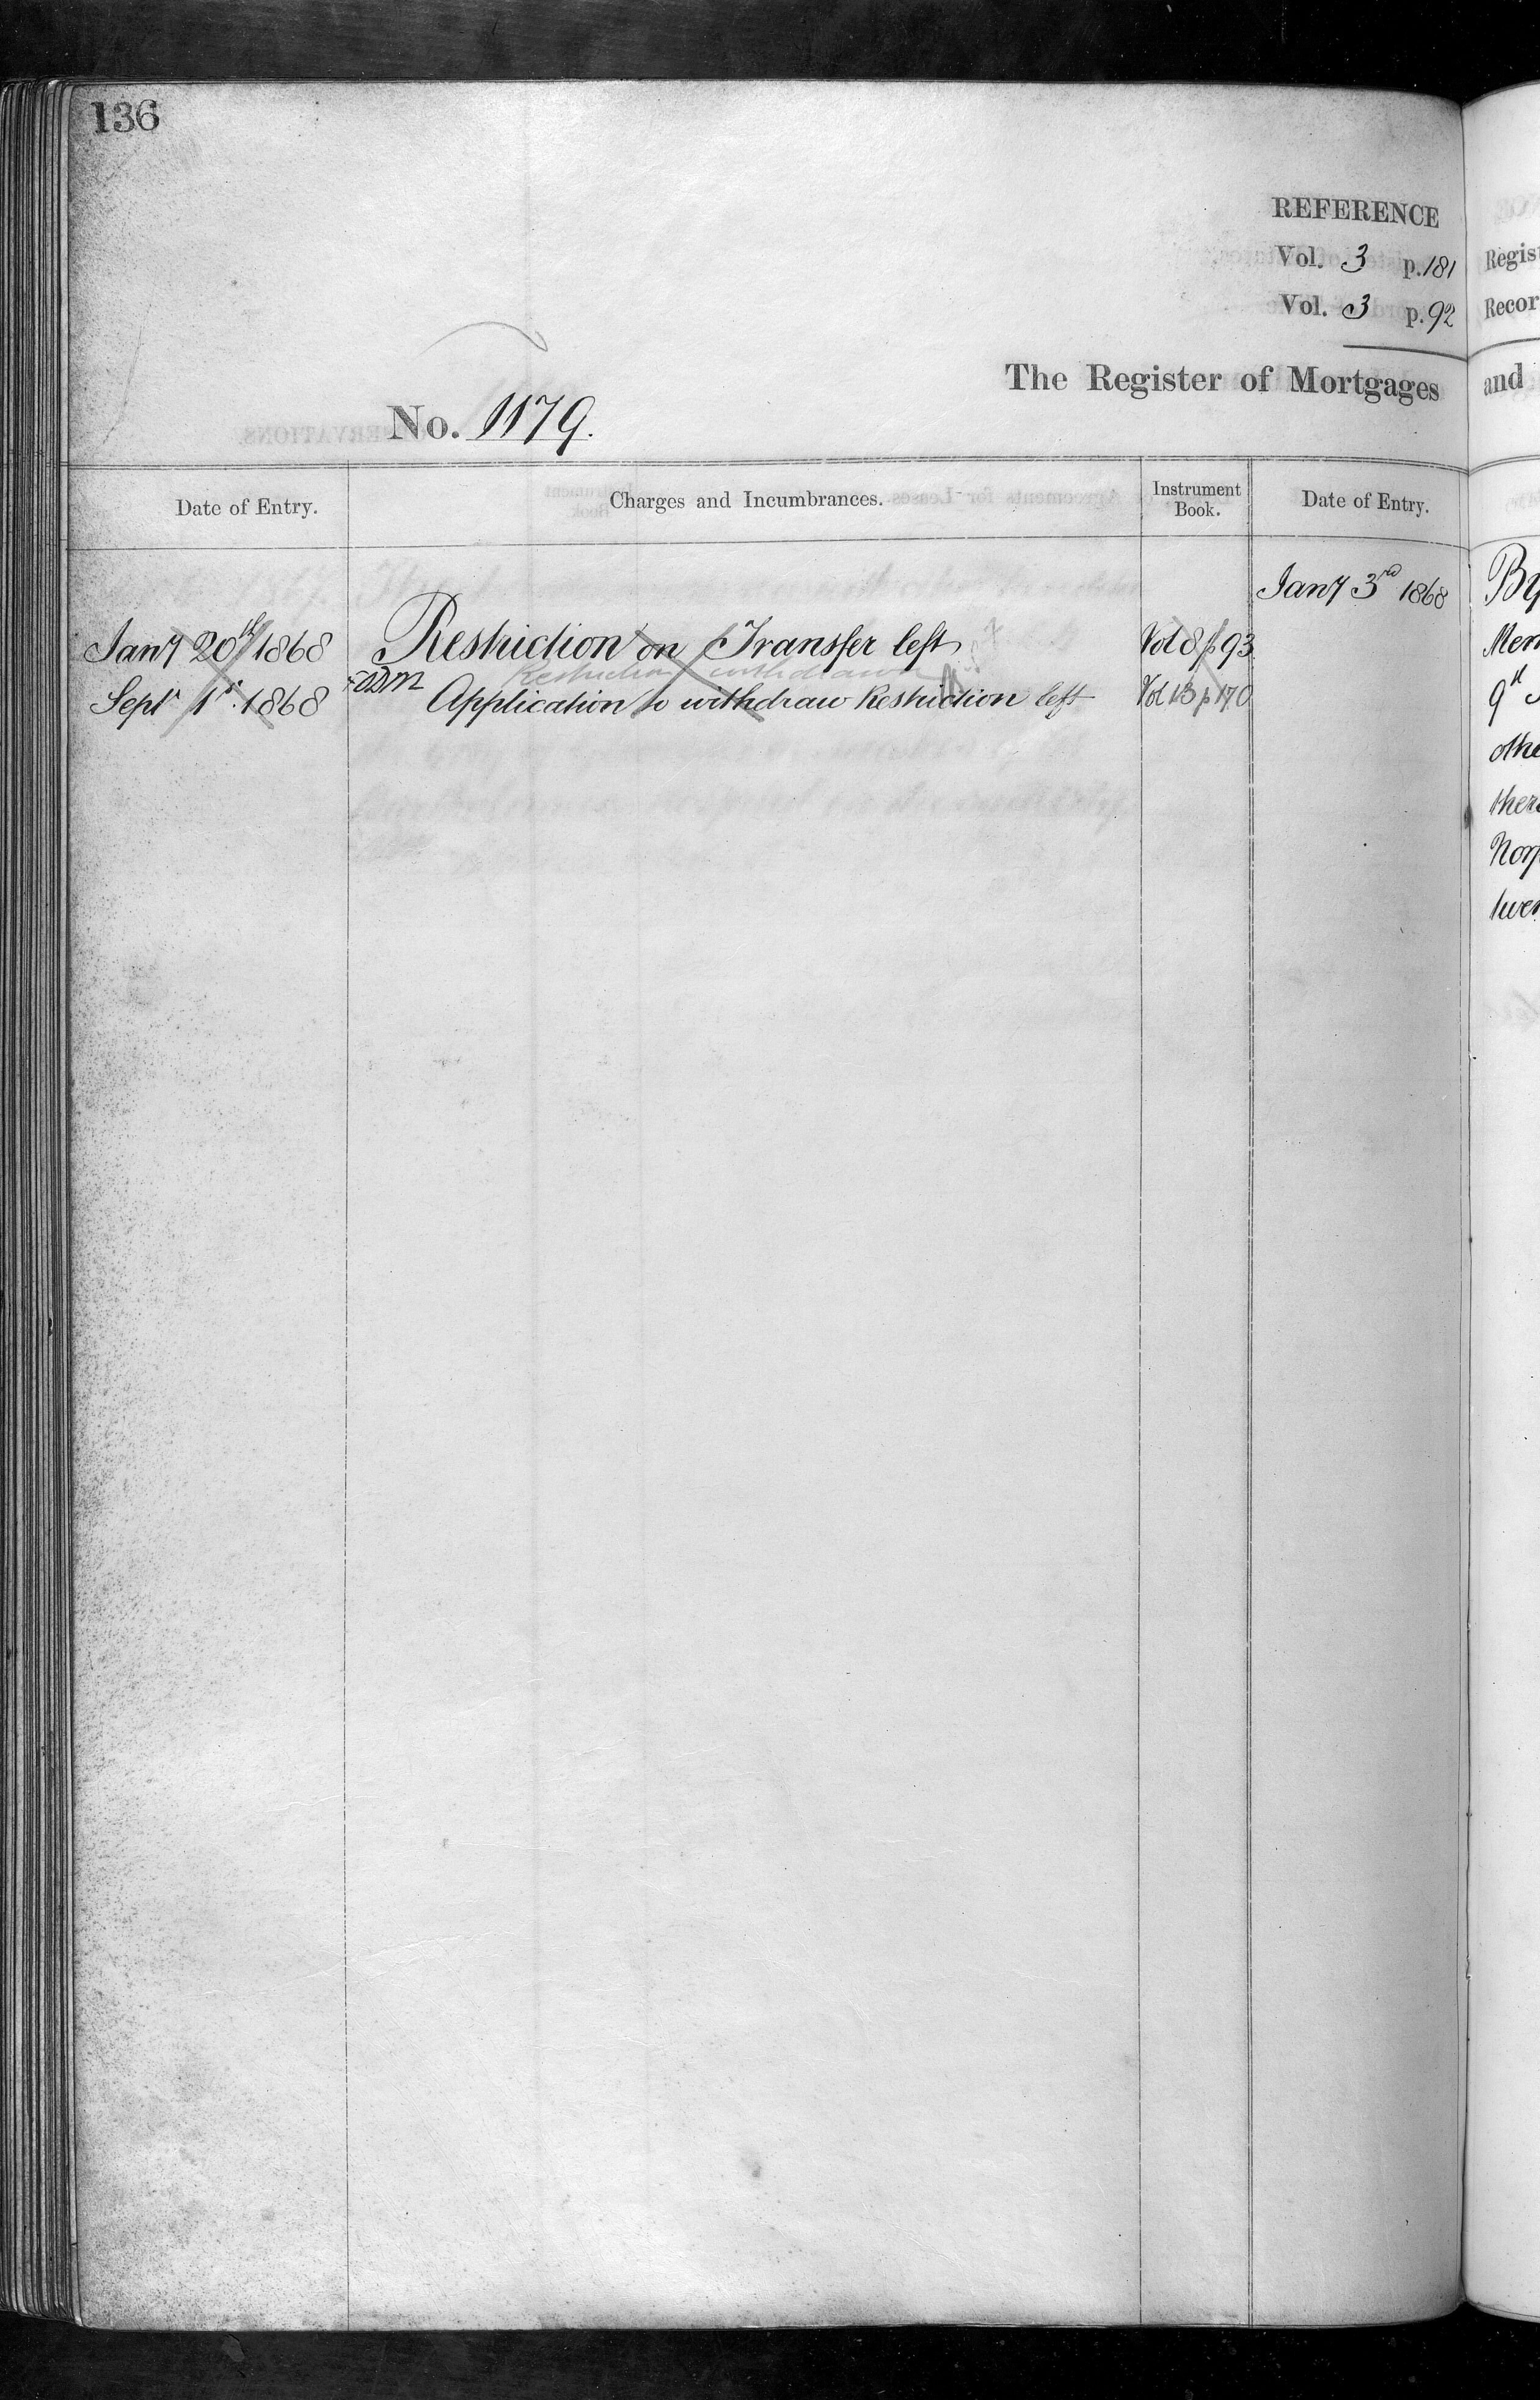 136
REFERENCE
Vol. 3 p. 181
Vol. 3 p. 92
The Register of Mortgages
No. 1179.
Date of Entry.
Charges and Incumbrances.
Instrument Book.
Date of Entry.
Jany 3rd 1868
Jany 20th 1868 Restriction on Transfer left Vol 8 p 93
Restriction withdrawn
Septr 1st 1868 Application to withdraw Restriction left Vol 13 p 170
Regis
Recor
and
By
Mem
9th
othe
there
Norf
twen